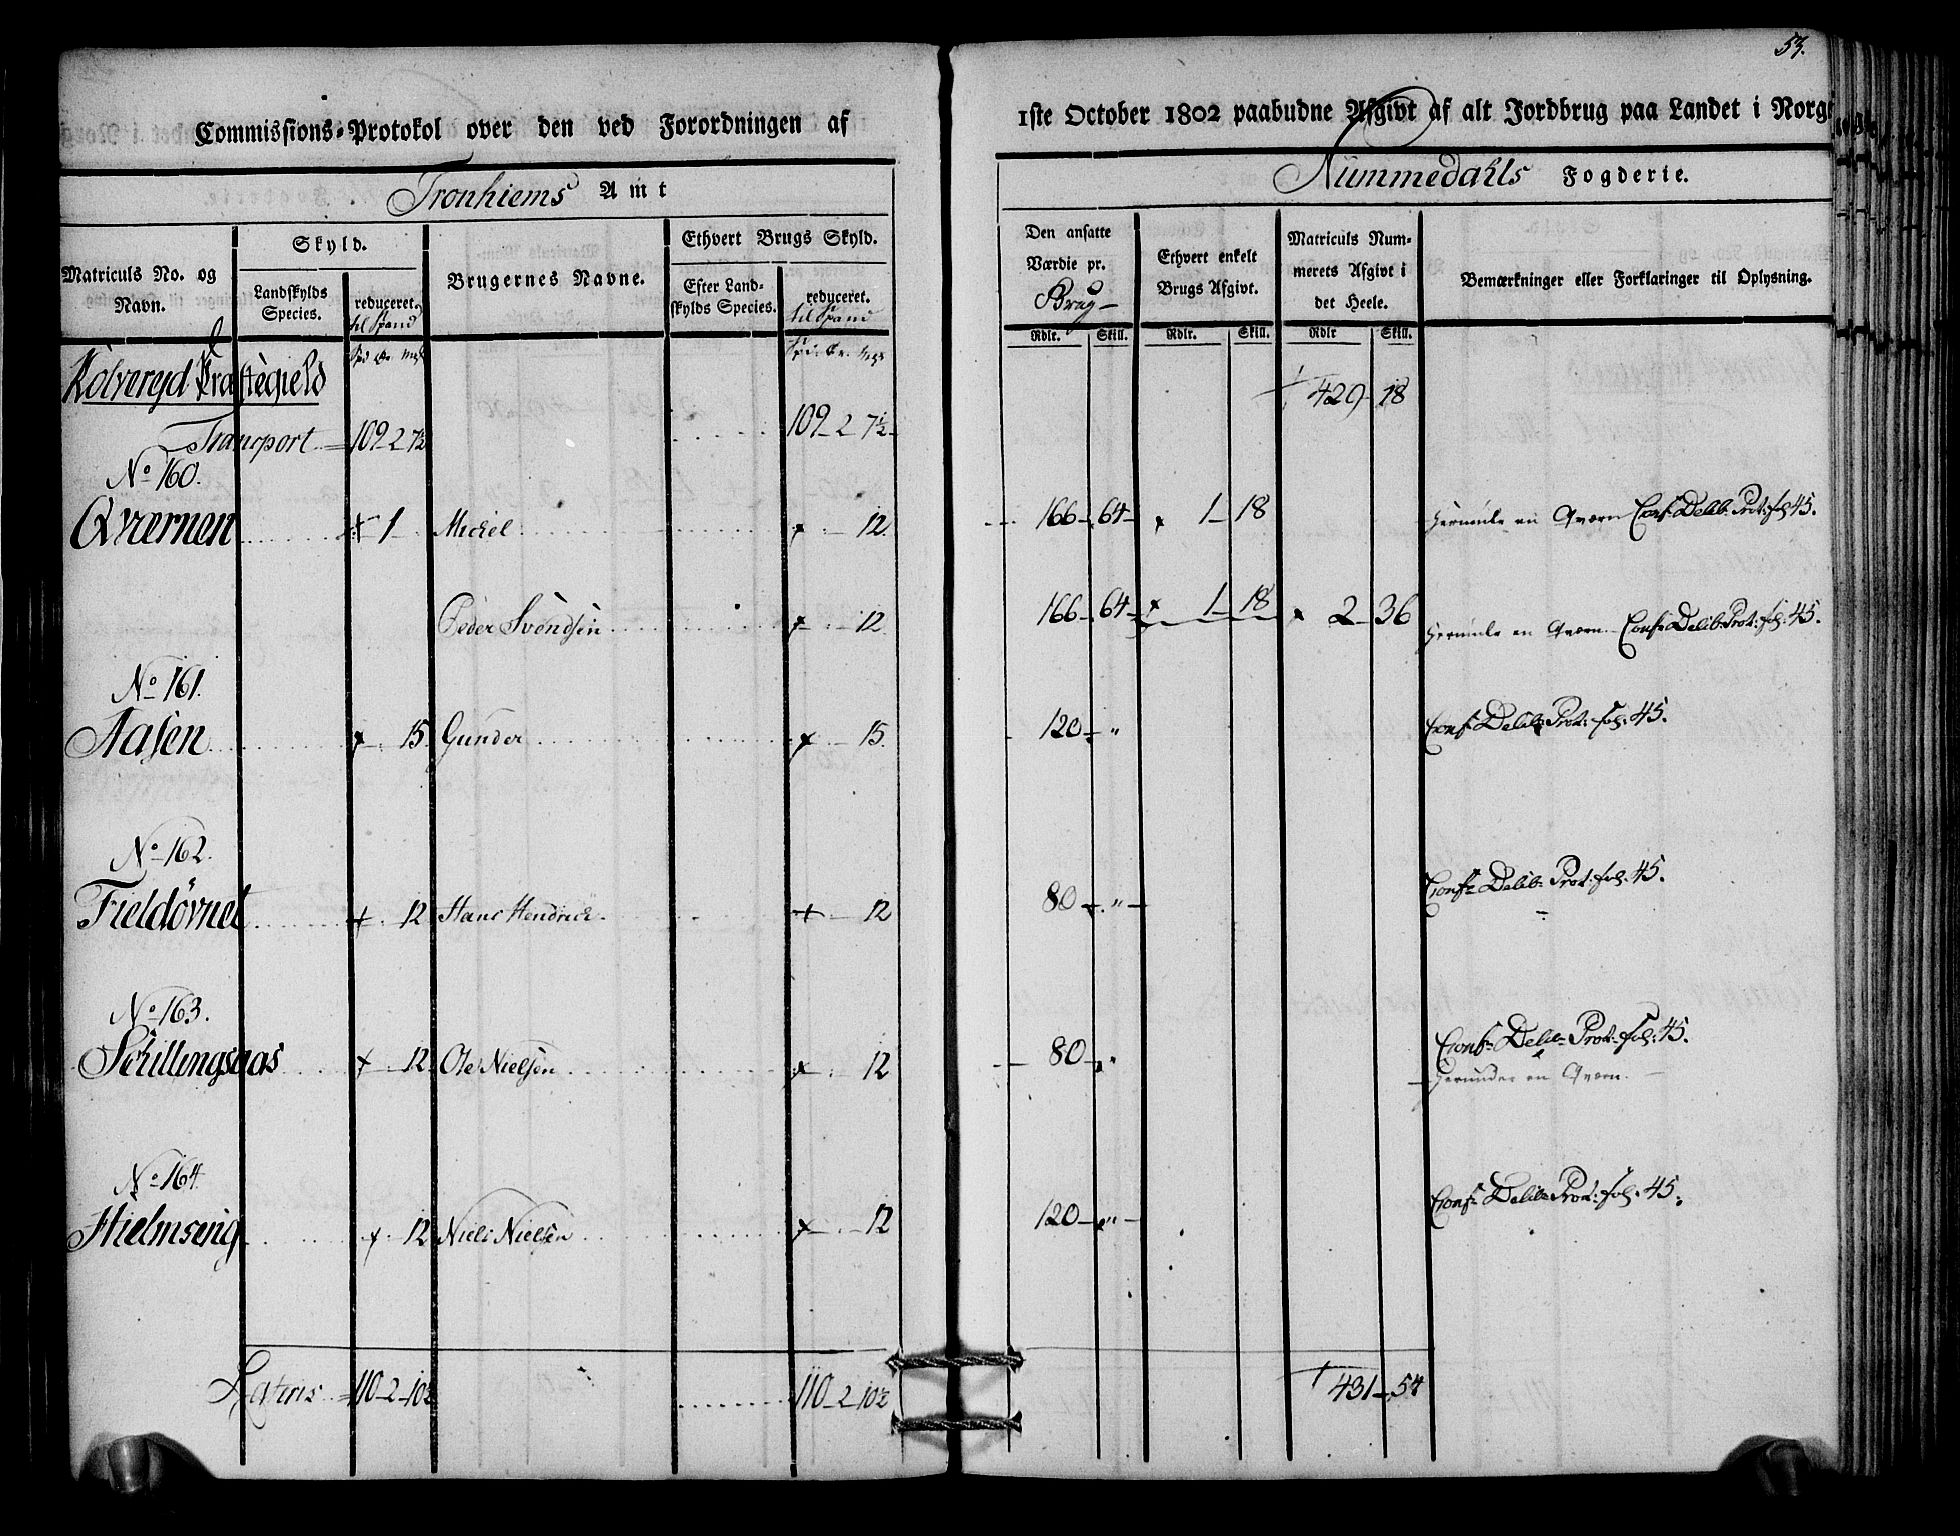 53.
Commissions-Protokol over den ved Forordningen af 1ste October 1802 paabudne Afgivt af alt Jordbrug paa Landet i Norge
Tronhiems Amt
Nummedahls Fogderie.
Matriculs No. og Navn.
Skyld.
Landskylds Species.
reduceret. til Spand
Brugernes Navne.
Ethvert Brugs Skyld.
Efter Landskylds Species.
reduceret. til Spand
Den ansatte Værdie pr. Brug
Ethvert enkelt Brugs Afgivt.
Matriculs Nummerets Afgivt i det Heele.
Bemærkninger eller Forklaringer til Oplysning.
Spd. Ør. Mrk
Spd. Ør. Mrk
Rdlr. Skill. Rdlr. Skill. Rdlr Skill.
Kolvereyd Præstegield
Transport 109 2 7½ 109 2 7½ 429 18
No 160.
Qværnen 1 Michel 12 166 64 1 18 Herunder en Qværn Conf Delib: Prot: fol 45.
Peder Svendsen 12 166 64 1 18 2 36 Herunder en Qværn Conf Delib: Prot: fol: 45.
No 161.
Aasen 15 Gunder 15. 120 " Conf Delib: Prot: fol: 45.
No 162.
Fieldövnet 12 Hans Hendrich 12 80 " Conf Delib: Prot: fol. 45.
No 163.
Schillingsaas 12 Ole Nielsen 12 80 " Conf Delib: Prot: fol: 45.
Herunder en Qværn.
No 164.
Hielmseng 12 Niels Nielsen 12 120 " Conf Delib: Prot: fol. 45.
Lateris 110 2 10½ 110 2 10½ 431 54